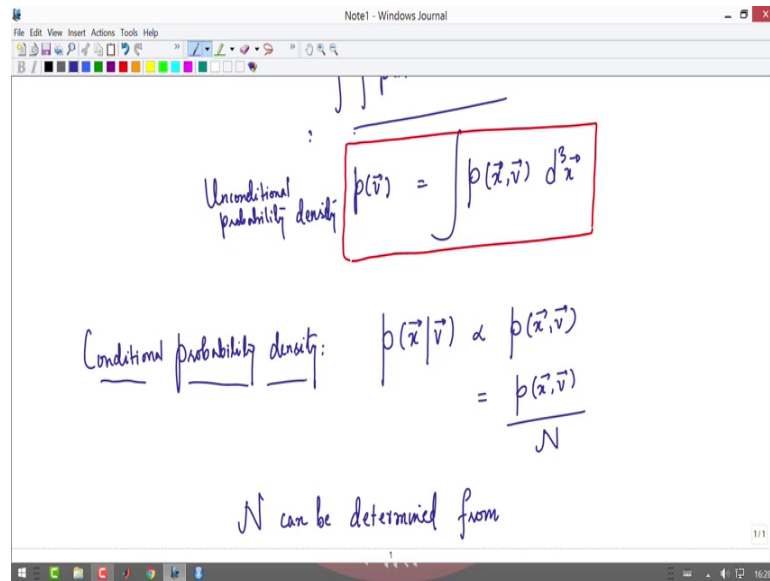 Note1 - Windows Journal
File Edit View Insert Actions Tools Help
B I
∫ ∫
:
Unconditional
probability density
p(v⃗) = ∫ p(x⃗,v⃗) d³x⃗
Conditional probability density: p(x⃗|v⃗) ∝ p(x⃗,v⃗)
= p(x⃗,v⃗) / N
N can be determined from
1/1
1
16:20